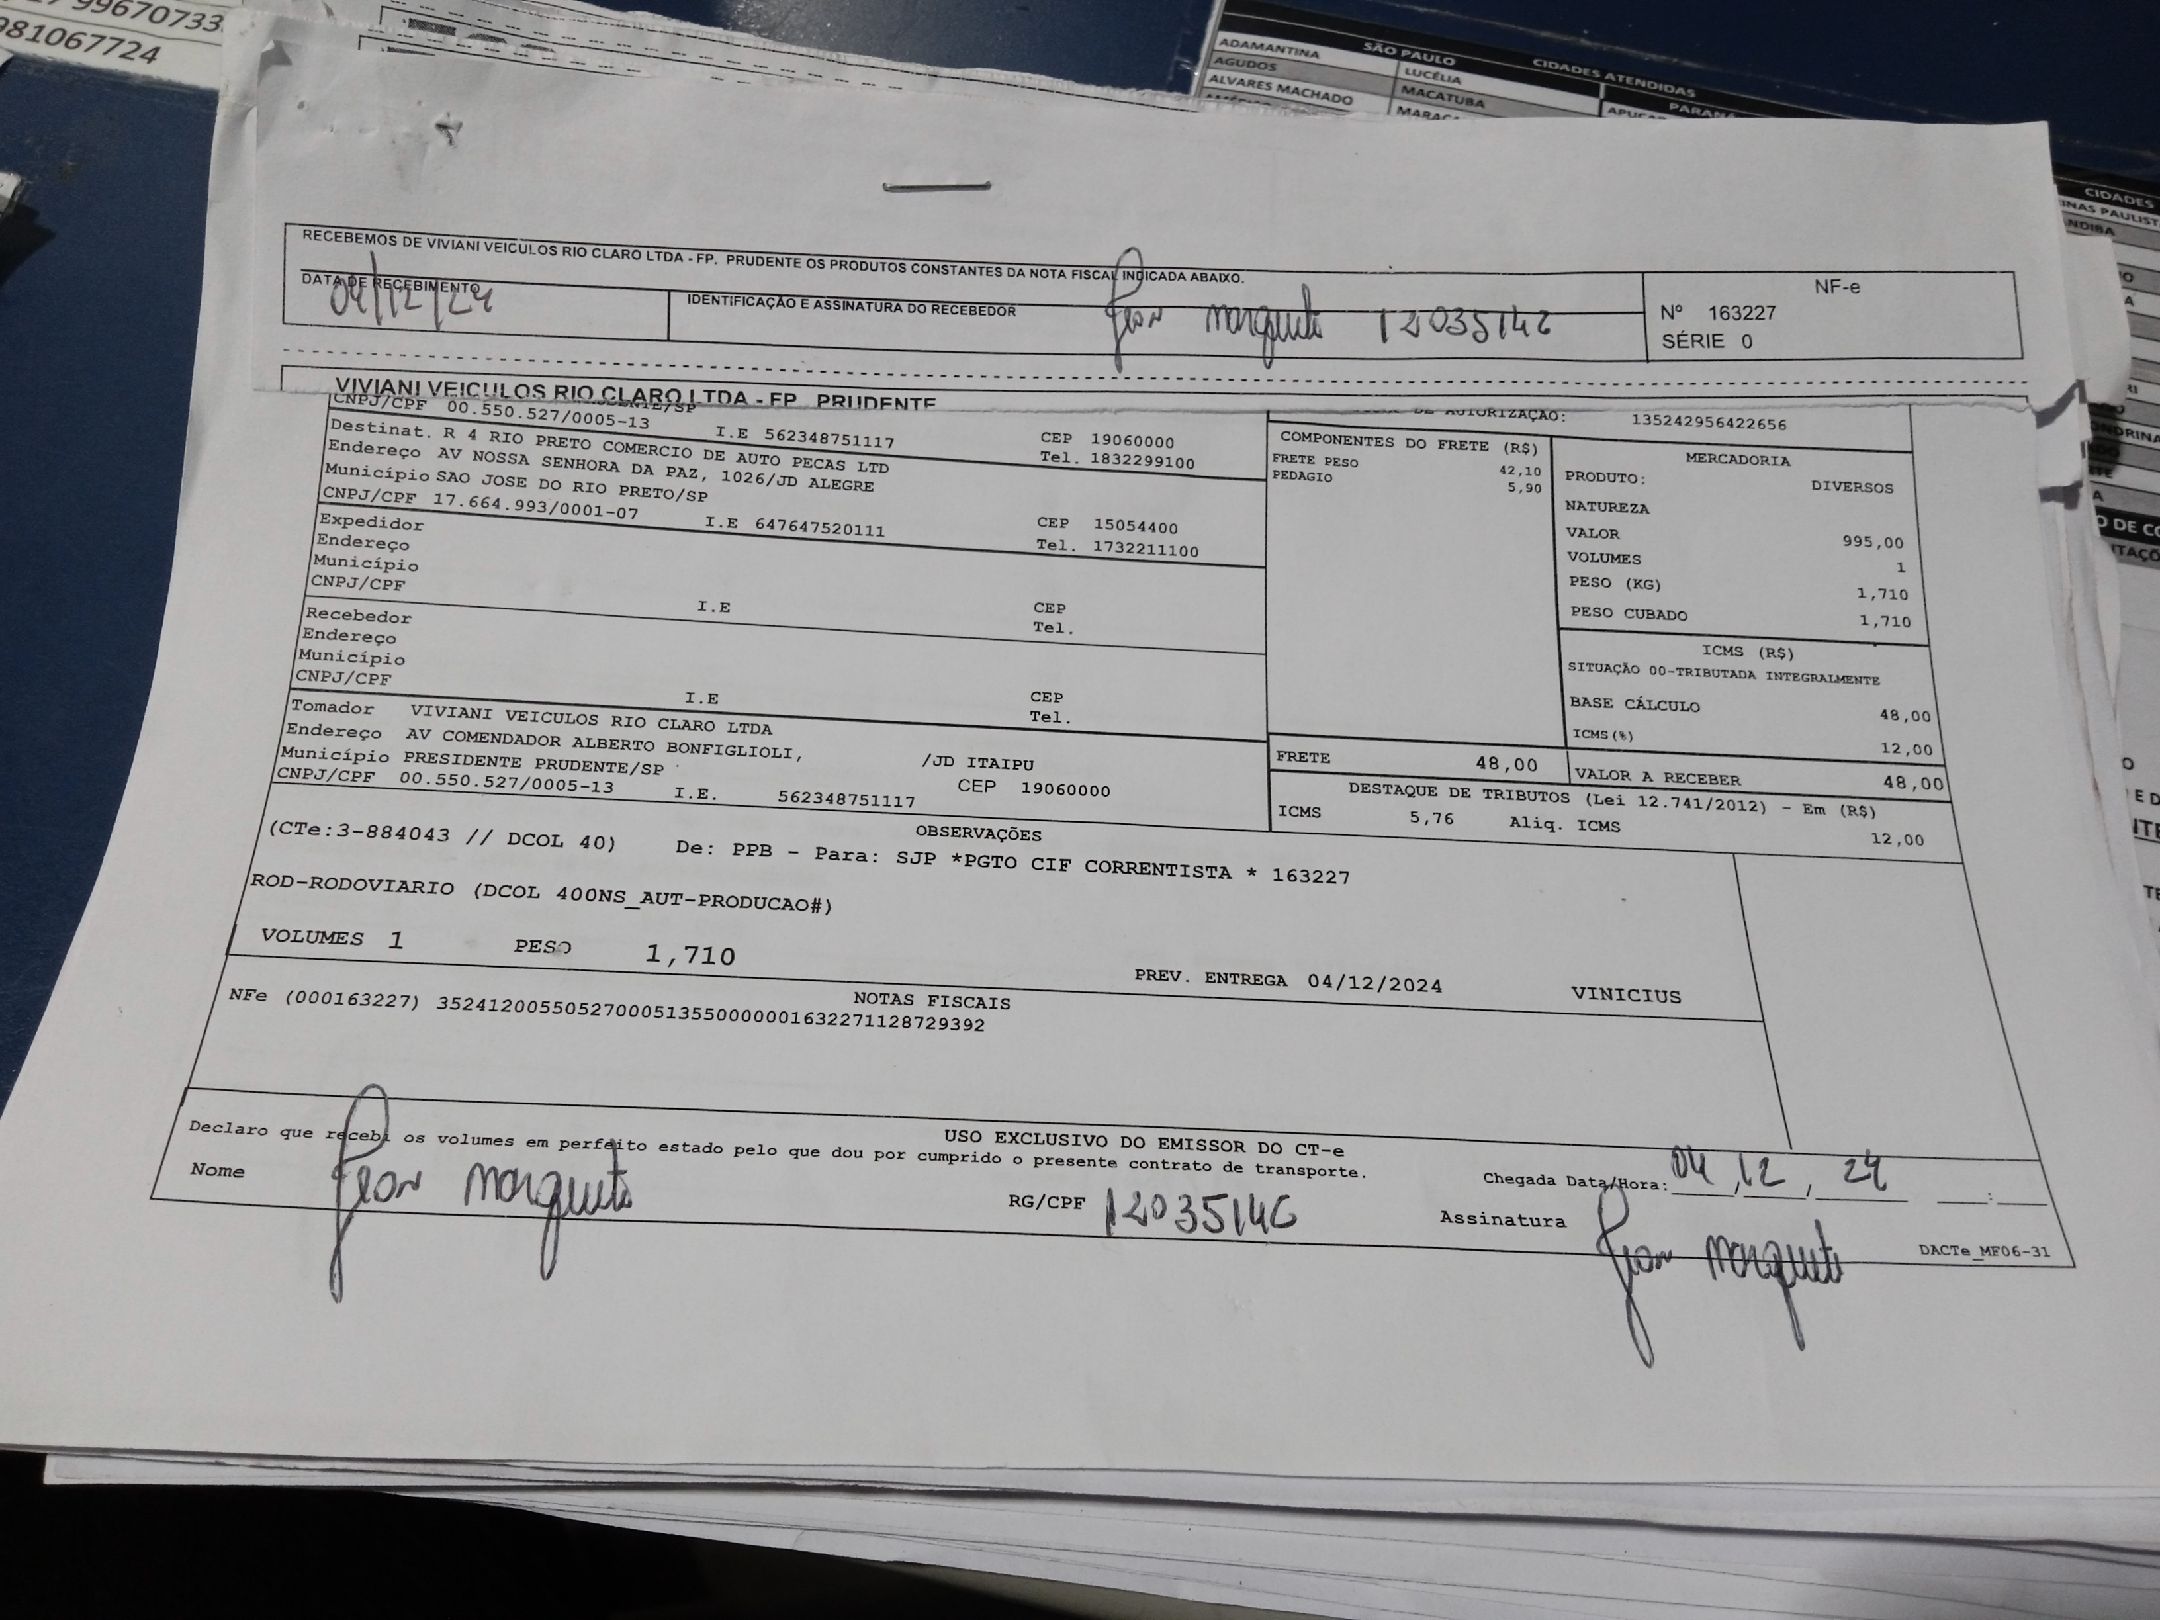 99670733
981067724
SÃO PAULO
CIDADES ATENDIDAS
ADAMANTINA
LUCÉLIA
AGUDOS
MACATUBA
ALVARES MACHADO
PARANÁ
CIDADES
RECEBEMOS DE VIVIANI VEICULOS RIO CLARO LTDA - FP. PRUDENTE OS PRODUTOS CONSTANTES DA NOTA FISCAL INDICADA ABAIXO.
DATA DE RECEBIMENTO
04/12/24
IDENTIFICAÇÃO E ASSINATURA DO RECEBEDOR
Jean Marqueto 12035146
NF-e
Nº 163227
SÉRIE 0
VIVIANI VEICULOS RIO CLARO LTDA - FP PRUDENTE
CNPJ/CPF 00.550.527/0005-13 I.E 562348751117 CEP 19060000
Tel. 1832299100
Destinat. R 4 RIO PRETO COMERCIO DE AUTO PECAS LTD
Endereço AV NOSSA SENHORA DA PAZ, 1026/JD ALEGRE
Município SAO JOSE DO RIO PRETO/SP CEP 15054400
CNPJ/CPF 17.664.993/0001-07 I.E 647647520111 Tel. 1732211100
Expedidor
Endereço
Município CEP
CNPJ/CPF I.E Tel.
Recebedor
Endereço
Município CEP
CNPJ/CPF I.E Tel.
Tomador VIVIANI VEICULOS RIO CLARO LTDA
Endereço AV COMENDADOR ALBERTO BONFIGLIOLI, /JD ITAIPU
Município PRESIDENTE PRUDENTE/SP CEP 19060000
CNPJ/CPF 00.550.527/0005-13 I.E. 562348751117
DE AUTORIZAÇÃO: 135242956422656
COMPONENTES DO FRETE (R$)
FRETE PESO 42,10
PEDAGIO 5,90
MERCADORIA
PRODUTO: DIVERSOS
NATUREZA
VALOR 995,00
VOLUMES 1
PESO (KG) 1,710
PESO CUBADO 1,710
ICMS (R$)
SITUAÇÃO 00-TRIBUTADA INTEGRALMENTE
BASE CÁLCULO 48,00
ICMS(%) 12,00
FRETE 48,00
VALOR A RECEBER 48,00
DESTAQUE DE TRIBUTOS (Lei 12.741/2012) - Em (R$)
ICMS 5,76 Aliq. ICMS 12,00
OBSERVAÇÕES
(CTe:3-884043 // DCOL 40) De: PPB - Para: SJP *PGTO CIF CORRENTISTA * 163227
ROD-RODOVIARIO (DCOL 400NS_AUT-PRODUCAO#)
VOLUMES 1 PESO 1,710 PREV. ENTREGA 04/12/2024 VINICIUS
NOTAS FISCAIS
NFe (000163227) 35241200550527000513550000001632271128729392
USO EXCLUSIVO DO EMISSOR DO CT-e
Declaro que recebi os volumes em perfeito estado pelo que dou por cumprido o presente contrato de transporte.
Chegada Data/Hora: 04, 12, 24 :
Nome Jean Marqueto RG/CPF 12035146 Assinatura Jean Marqueto
DACTe_MF06-31